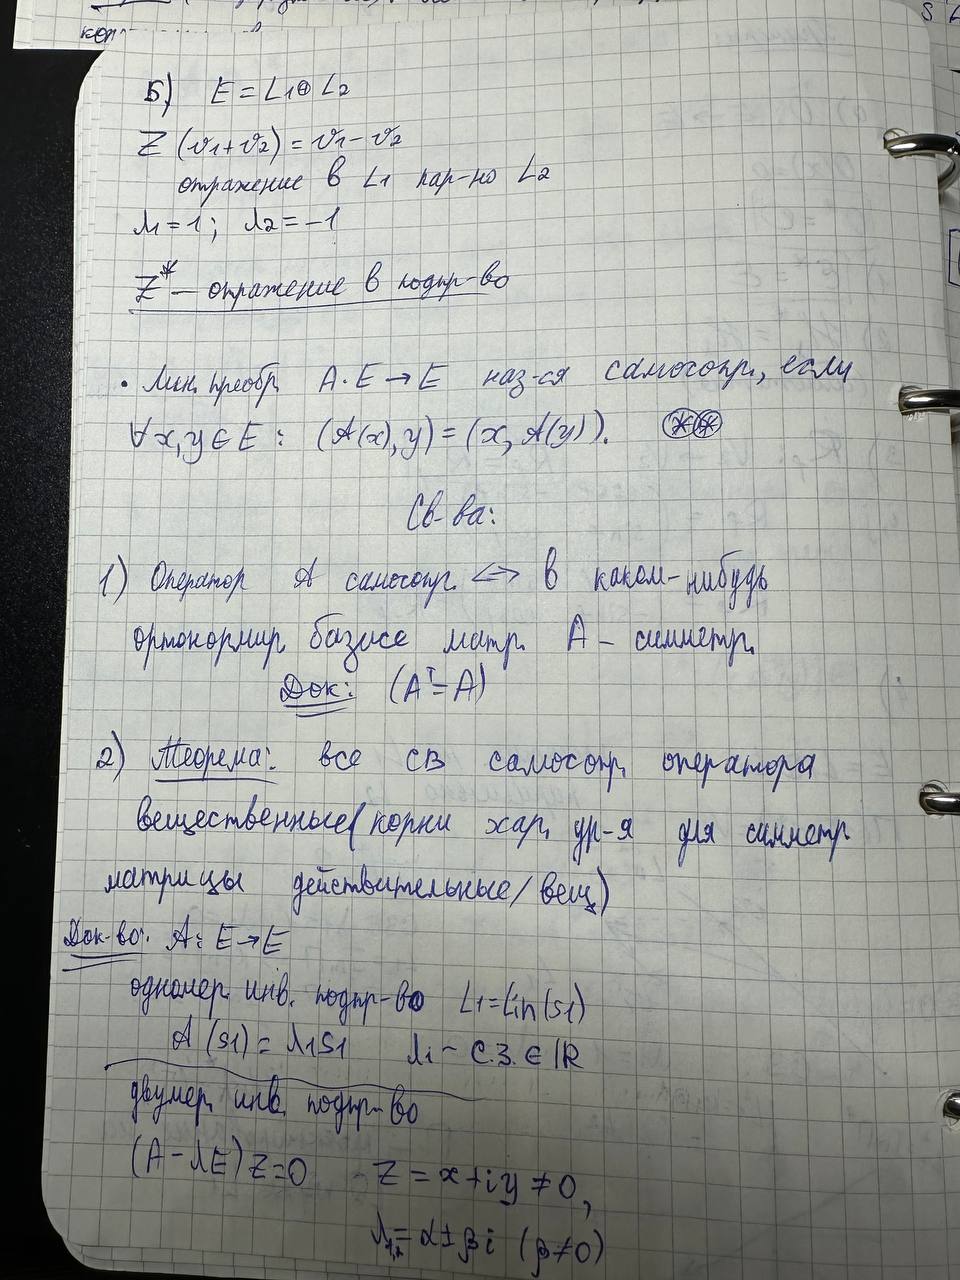 Б) E = L1 ⊕ L2
Z (v1+v2) = v1 - v2
отражение в L1 пар-но L2
λ1 = 1; λ2 = -1
Z* — отражение в подпр-во
• Лин. преобр. A: E → E наз-ся самосопр., если
∀ x, y ∈ E : (A(x), y) = (x, A(y)). ⊛⊛
Св-ва:
1) Оператор A самосопр. <=> в каком-нибудь
ортонормир. базисе матр. A - симметр.
Док: (Aᵀ = A)
2) Теорема: все СВ самосопр. оператора
вещественные (корни хар. ур-я для симметр
матрицы действительные/вещ)
Док-во: A: E → E
одномер. инв. подпр-во L1 = Lin(s1)
A (s1) = λ1s1 λi - С.З. ∈ ℝ
двумер. инв. подпр-во
(A - λE) Z = 0 Z = x + iy ≠ 0,
λ1,2 = α ± βi (β ≠ 0)